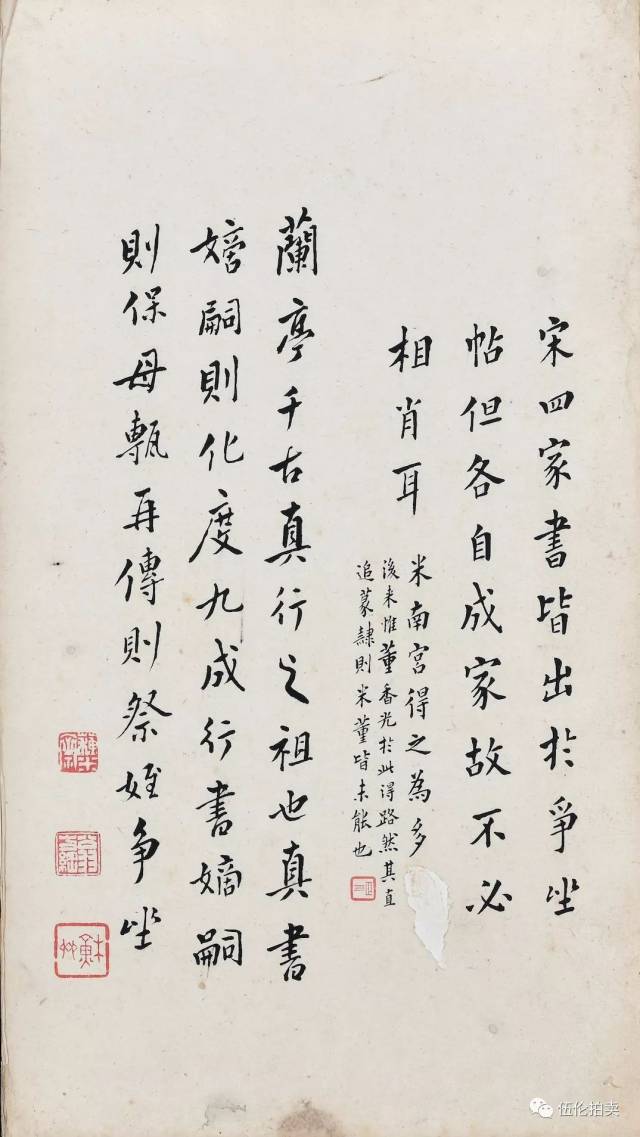 宋四家書皆出於爭坐
帖但各自成家故不必
相肖耳
米南宮得之為多
後来惟董香光於此得路然其直
追篆隸則米董皆未能也
蘭亭千古真行之祖也真書
嫡嗣則化度九成行書嫡嗣
則保母甎再傳則祭姪争坐
伍伦拍卖